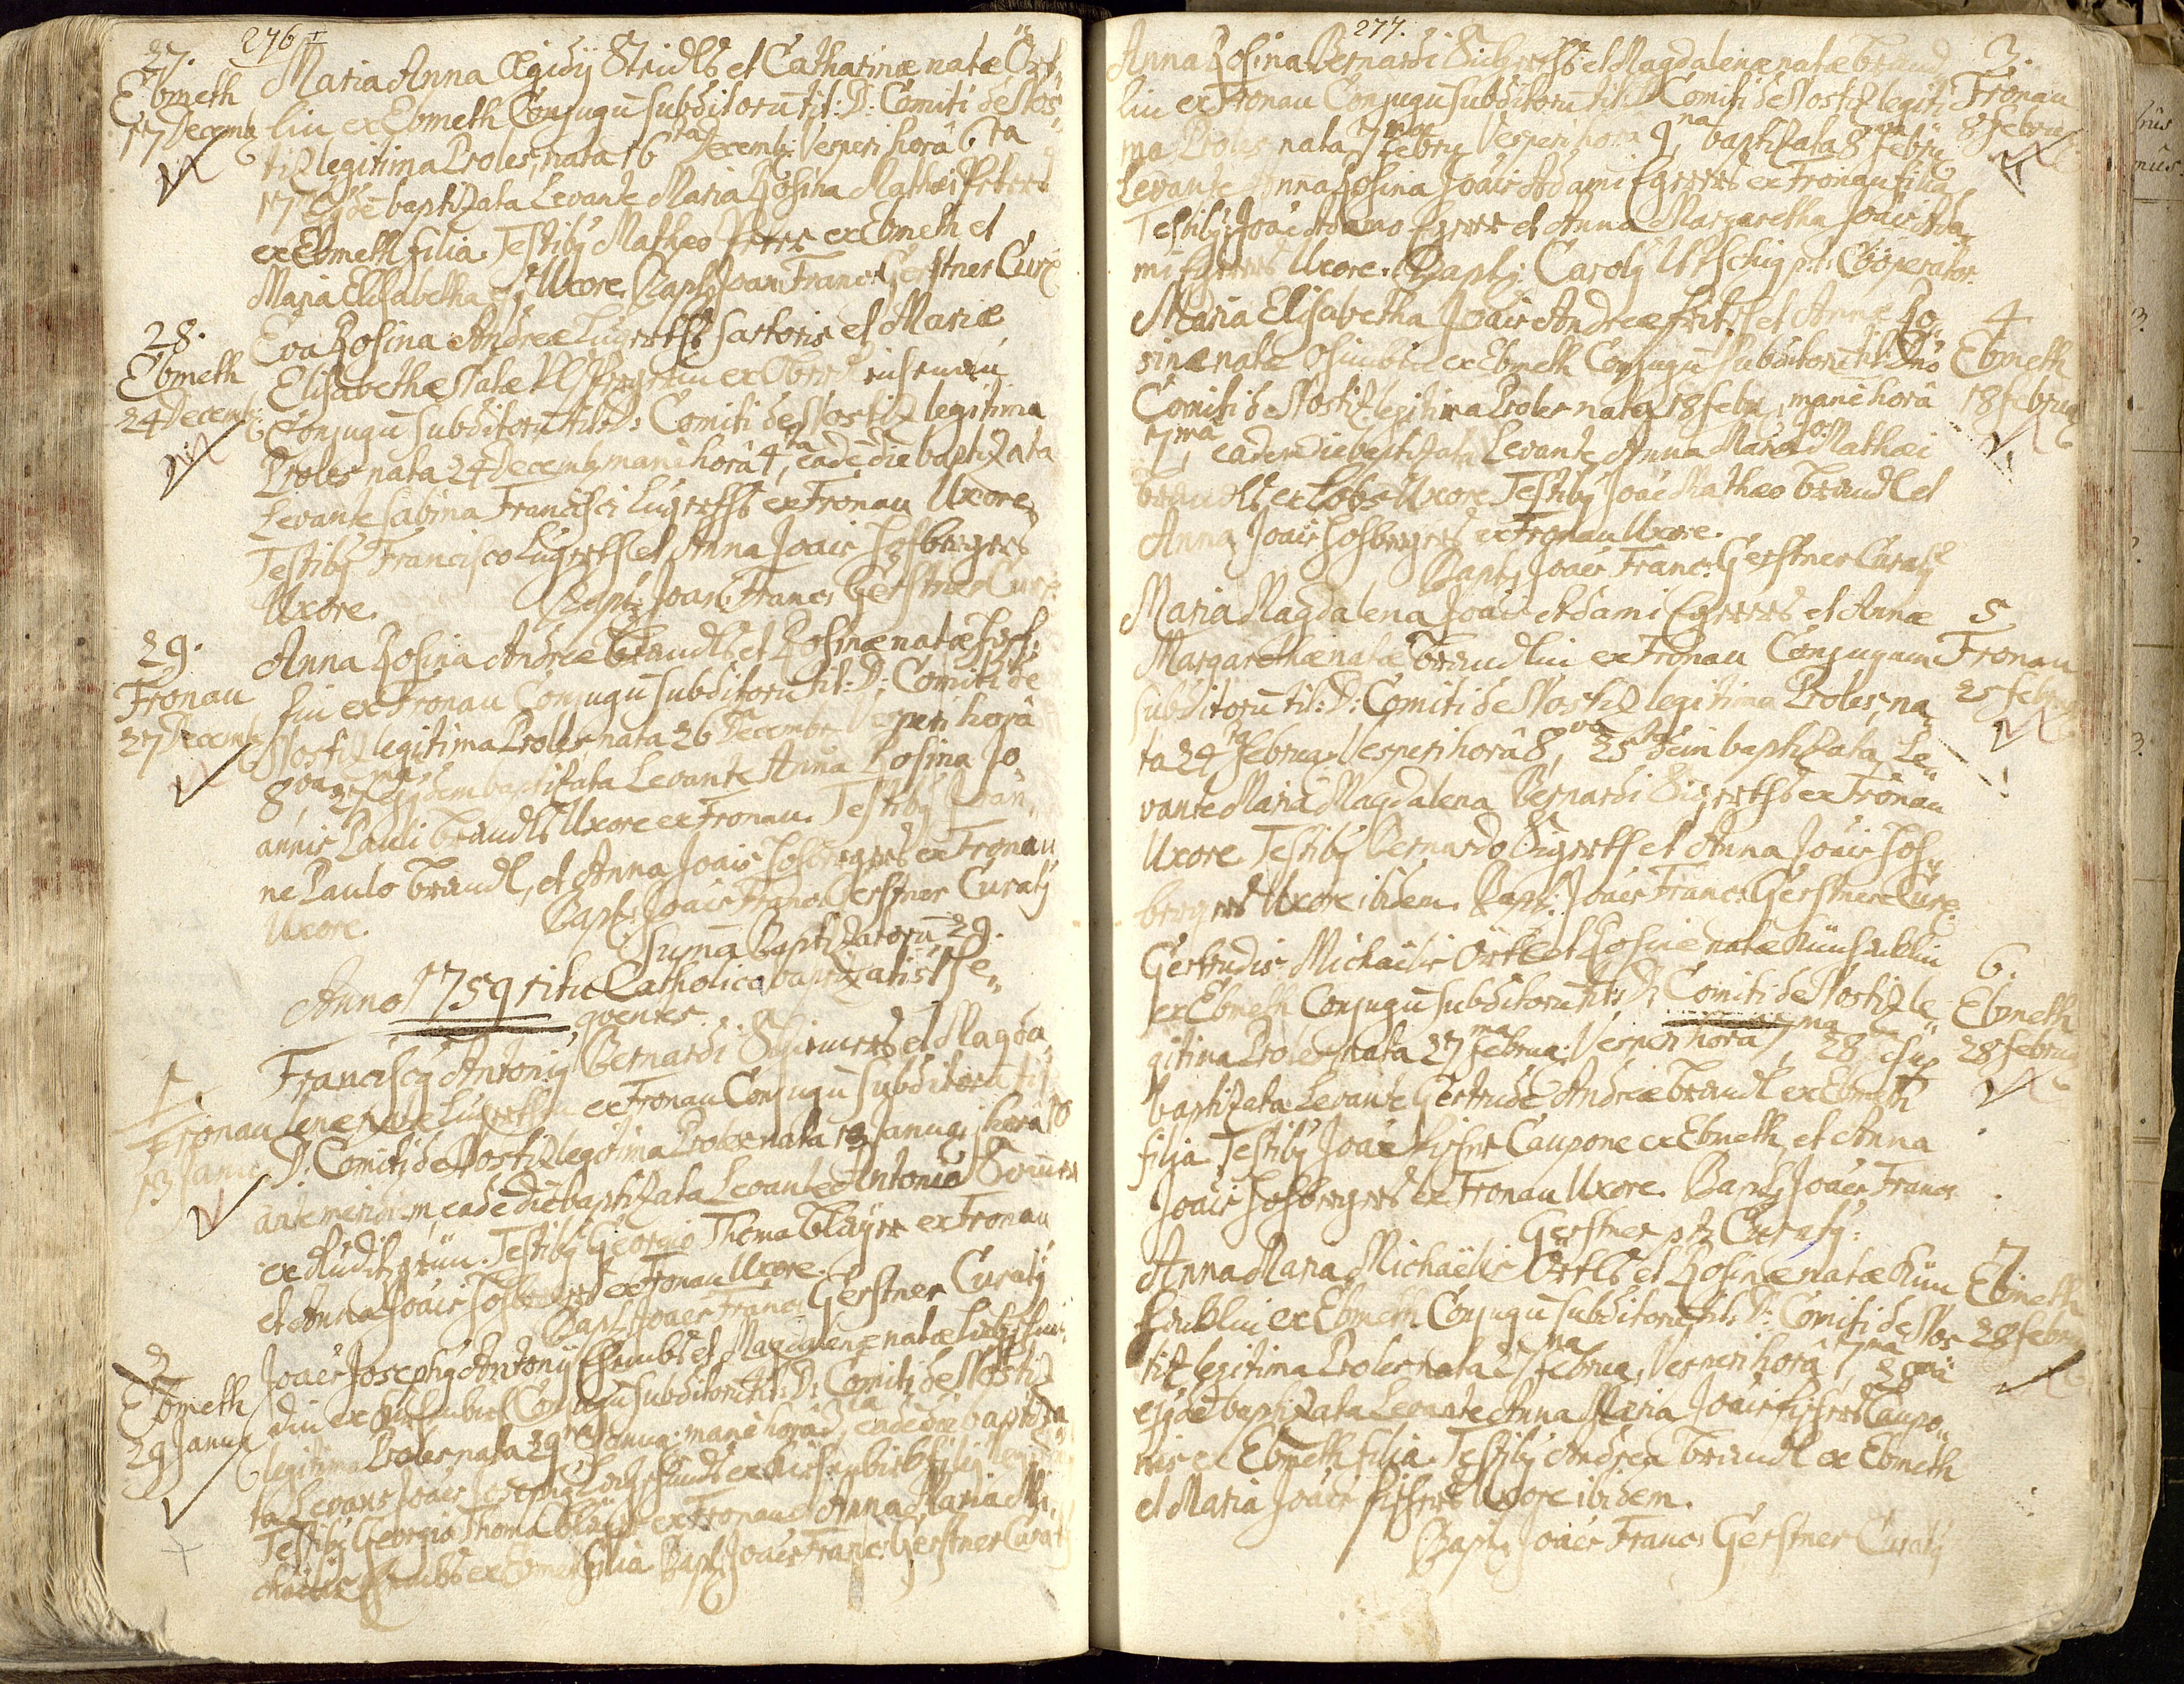 276
27.
Ebmeth
17 Decemb
Maria Anna Ægidij et Catharinæ natæ Ört„
lin ex Ebmeth Conjugū subditorū tit: D: Comiti de Nos„
tiz legitima Proles, nata 16 ta Decemb: Vesperi horâ 6 ta
17 baptizata Levante Maria Rosina Mathæi
ex Ebmeth filia. Testibg Matheo ex Ebmeth et
Maria Elisabetha Uxore. Bapt: Joan: Franc: Gerstner Cur:
28.
Ebmeth
24 Decemb:
Eva Rosina Andreæ sartoris et Mariæ
Elisabethæ Natæ ex
Conjugū subditorū tit: D: Comiti de Nostiz legitima
Proles nata 24 Decemb: manè horâ 4 ta, eadē die baptizata
Levante Sabina Francisci ex Fronau Uxore,
Testibg Francisco et Anna Joais
Uxore. Bapt: Joan: Franc: Gerstner Cur:
29.
Fronau
27 Decemb
Anna Rosina Andreæ Brandls et Rosinæ natæ
lin ex Fronau Conjugū subditorū tit: D: Comiti de
Nostiz legitima Proles nata 26 Decembr Vesperi horâ
8 va, baptizata Levante Anna Rosina Jo
annis Pauli Brandls Uxore ex Fronau. Testibg Joan„
ne Paulo Brandl, et Anna Joais ex Fronau
Uxore. Bapt: Joaēs Franc: Gerstner Curatg
Suma Baptizatorū 29.
Anno 1759 ritu Catholico baptizati st se„
quentes.
1.
Fronau
13 Janu
Franciscg Antonig Bernardi et Magda„
lenæ natæ ex Fronau Conjugū subditorū tit
D: Comiti de Nostiz legitima Proles nata 13 Janua: hora 10
ante meridiem, eadē die baptizata Levante Antonio
ex Testibg Georgio Thoma ex Fronau
et Anna Joais ex Fronau Uxore.
Bapt: Joaes Franc: Gerstner Curatg
2
Ebmeth
29 Janua
Joaēs Josephg Antonij et Magdalenæ natæ
ex Conjugū subditorū tit: D: Comiti de Nostiz
legitima Proles nata 29 Janua: manè horâ, eadē die baptiza
ta Levans Joaēs Josephg ex
Testibg Georgio Thoma ex Fronau et Anna Maria Mi„
chaelis ex Ebmeth filia. Bapt: Joaēs Franc: Gerstner Curatg
277.
Anna Rosina Bernardi et Magdalenæ natæ Brand
lin ex Fronau Conjugū subditorū tit: D: Comiti de Nostiz legiti
ma Proles nata 7 ma Febru: Vesperi horâ 9 na, baptizata 8 va Febru:
Levante Anna Rosina Joāis Adami Egerers ex Fronau filia,
Testibg: Joaē Adamo Egerer et Anna Margaretha Joāis Ada„
mi Egerers Uxore. Bapt: Carolg p.t: Cooperator.
3.
Fronau
8 febru
Maria Elisabetha Joāis Andreæ et Annæ Ro„
sinæ natæ ex Ebmeth Conjugū subditorū tit: Dno
Comiti de Nostiz legitima Proles nata 18 febru: manè horâ
7 ma, eadem die baptizata Levante Anna Maria Jo: Mathæi
Brandls ex Uxore. Testibg Joaē Matheo Brandl et
Anna Joāis ex Fronau Uxore.
Bapt: Joaēs Franc: Gerstner Curatg
4
Ebmeth
18 februa
Maria Magdalena Joāis Adami Egerers et Annæ
Margarethæ natæ Brandlin ex Fronau Conjugum
subditorū tit: D: Comiti de Nostiz legitima Proles, na„
ta 24 ta februa: Vesperi horâ 8 va, 25 ta baptizata, Le„
vante Maria Magdalena Bernardi ex Fronau
Uxore. Testibg Bernardo et Anna Joāis
Uxore ibidem. Bapt: Joaēs Franc: Gerstner Cur:
5
Fronau
25 februa
Gertrudis Michaëlis Örtls et Rosinæ natæ
ex Ebmeth Conjugū subditorū tit: D: Comiti de Nostiz le„
gitima Proles nata 27 ma februa: Vesperi hora 7 ma, 28
baptizata Levante Gertrude Andreæ Brandl ex Ebmeth
filia. Testibg Joaē Caupone ex Ebmeth, et Anna
Joāis ex Fronau Uxore. Bapt: Joaēs Franc:
Gerstner p.t. Curatg:
6.
Ebmeth
28 februa
Anna Maria Michaëlis Örtls et Rosinæ natæ
ex Ebmeth Conjugū subditorū tit: D: Comiti de Nos„
tiz legitima Proles nata 27 ma februa, Vesperi horâ 7 ma, 28
baptizata Levante Anna Maria Joāis Caupo„
nis ex Ebmeth filia. Testibg Andrea Brandl ex Ebmeth
et Maria Joāis Uxore ibidem.
Bapt: Joaēs Franc: Gerstner Curatg
7.
Ebmeth
28 febru